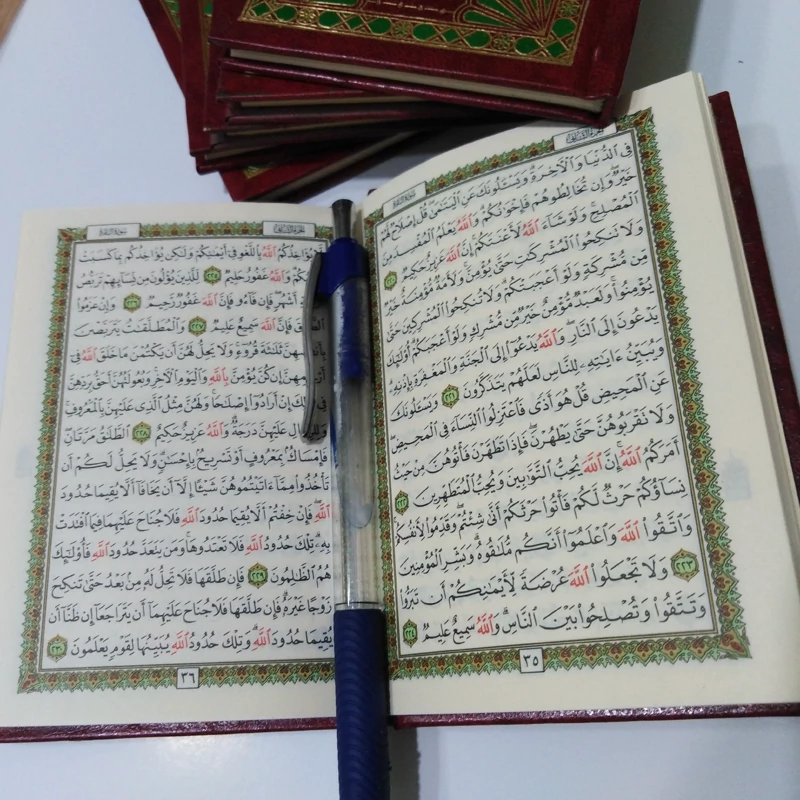 الجزء الثاني
سورة البقرة
فِى ٱلدُّنْيَا وَٱلْأَخِرَةِ وَيَسْـَٔلُونَكَ عَنِ ٱلْيَتَـٰمَىٰ قُلْ إِصْلَاحٌ لَّهُمْ
خَيْرٌ وَإِن تُخَالِطُوهُمْ فَإِخْوَٰنُكُمْ وَٱللَّهُ يَعْلَمُ ٱلْمُفْسِدَ مِنَ
ٱلْمُصْلِحِ وَلَوْ شَآءَ ٱللَّهُ لَأَعْنَتَكُمْ إِنَّ ٱللَّهَ عَزِيزٌ حَكِيمٌ ٢٢٠
وَلَا تَنكِحُوا۟ ٱلْمُشْرِكَـٰتِ حَتَّىٰ يُؤْمِنَّ وَلَأَمَةٌ مُّؤْمِنَةٌ خَيْرٌ
مِّن مُّشْرِكَةٍ وَلَوْ أَعْجَبَتْكُمْ وَلَا تُنكِحُوا۟ ٱلْمُشْرِكِينَ حَتَّىٰ
يُؤْمِنُوا۟ وَلَعَبْدٌ مُّؤْمِنٌ خَيْرٌ مِّن مُّشْرِكٍ وَلَوْ أَعْجَبَكُمْ أُو۟لَـٰٓئِكَ
يَدْعُونَ إِلَى ٱلنَّارِ وَٱللَّهُ يَدْعُوٓا۟ إِلَى ٱلْجَنَّةِ وَٱلْمَغْفِرَةِ بِإِذْنِهِۦ
وَيُبَيِّنُ ءَايَـٰتِهِۦ لِلنَّاسِ لَعَلَّهُمْ يَتَذَكَّرُونَ ٢٢١ وَيَسْـَٔلُونَكَ
عَنِ ٱلْمَحِيضِ قُلْ هُوَ أَذًى فَٱعْتَزِلُوا۟ ٱلنِّسَآءَ فِى ٱلْمَحِيضِ
وَلَا تَقْرَبُوهُنَّ حَتَّىٰ يَطْهُرْنَ فَإِذَا تَطَهَّرْنَ فَأْتُوهُنَّ مِنْ حَيْثُ
أَمَرَكُمُ ٱللَّهُ إِنَّ ٱللَّهَ يُحِبُّ ٱلتَّوَّٰبِينَ وَيُحِبُّ ٱلْمُتَطَهِّرِينَ ٢٢٢
نِسَآؤُكُمْ حَرْثٌ لَّكُمْ فَأْتُوا۟ حَرْثَكُمْ أَنَّىٰ شِئْتُمْ وَقَدِّمُوا۟ لِأَنفُسِكُمْ
وَٱتَّقُوا۟ ٱللَّهَ وَٱعْلَمُوٓا۟ أَنَّكُم مُّلَـٰقُوهُ وَبَشِّرِ ٱلْمُؤْمِنِينَ
٢٢٣ وَلَا تَجْعَلُوا۟ ٱللَّهَ عُرْضَةً لِّأَيْمَـٰنِكُمْ أَن تَبَرُّوا۟
وَتَتَّقُوا۟ وَتُصْلِحُوا۟ بَيْنَ ٱلنَّاسِ وَٱللَّهُ سَمِيعٌ عَلِيمٌ ٢٢٤
٣٥
الجزء الثاني
سورة البقرة
يُؤَاخِذُكُمُ ٱللَّهُ بِٱللَّغْوِ فِىٓ أَيْمَـٰنِكُمْ وَلَـٰكِن يُؤَاخِذُكُم بِمَا كَسَبَتْ
وَٱللَّهُ غَفُورٌ حَلِيمٌ ٢٢٥ لِّلَّذِينَ يُؤْلُونَ مِن نِّسَآئِهِمْ تَرَبُّصُ
أَشْهُرٍ فَإِن فَآءُو فَإِنَّ ٱللَّهَ غَفُورٌ رَّحِيمٌ ٢٢٦ وَإِنْ عَزَمُوا۟
فَإِنَّ ٱللَّهَ سَمِيعٌ عَلِيمٌ ٢٢٧ وَٱلْمُطَلَّقَـٰتُ يَتَرَبَّصْنَ
ثَلَـٰثَةَ قُرُوٓءٍ وَلَا يَحِلُّ لَهُنَّ أَن يَكْتُمْنَ مَا خَلَقَ ٱللَّهُ فِىٓ
إِن كُنَّ يُؤْمِنَّ بِٱللَّهِ وَٱلْيَوْمِ ٱلْأَخِرِ وَبُعُولَتُهُنَّ أَحَقُّ بِرَدِّهِنَّ
إِنْ أَرَادُوٓا۟ إِصْلَـٰحًا وَلَهُنَّ مِثْلُ ٱلَّذِى عَلَيْهِنَّ بِٱلْمَعْرُوفِ
عَلَيْهِنَّ دَرَجَةٌ وَٱللَّهُ عَزِيزٌ حَكِيمٌ ٢٢٨ ٱلطَّلَـٰقُ مَرَّتَانِ
فَإِمْسَاكٌۢ بِمَعْرُوفٍ أَوْ تَسْرِيحٌۢ بِإِحْسَـٰنٍ وَلَا يَحِلُّ لَكُمْ أَن
تَأْخُذُوا۟ مِمَّآ ءَاتَيْتُمُوهُنَّ شَيْـًٔا إِلَّآ أَن يَخَافَآ أَلَّا يُقِيمَا حُدُودَ
ٱللَّهِ فَإِنْ خِفْتُمْ أَلَّا يُقِيمَا حُدُودَ ٱللَّهِ فَلَا جُنَاحَ عَلَيْهِمَا فِيمَا ٱفْتَدَتْ
بِهِۦ تِلْكَ حُدُودُ ٱللَّهِ فَلَا تَعْتَدُوهَا وَمَن يَتَعَدَّ حُدُودَ ٱللَّهِ فَأُو۟لَـٰٓئِكَ
هُمُ ٱلظَّـٰلِمُونَ ٢٢٩ فَإِن طَلَّقَهَا فَلَا تَحِلُّ لَهُۥ مِنۢ بَعْدُ حَتَّىٰ تَنكِحَ
زَوْجًا غَيْرَهُۥ فَإِن طَلَّقَهَا فَلَا جُنَاحَ عَلَيْهِمَآ أَن يَتَرَاجَعَآ إِن ظَنَّآ أَن
يُقِيمَا حُدُودَ ٱللَّهِ وَتِلْكَ حُدُودُ ٱللَّهِ يُبَيِّنُهَا لِقَوْمٍ يَعْلَمُونَ ٢٣٠
٣٦